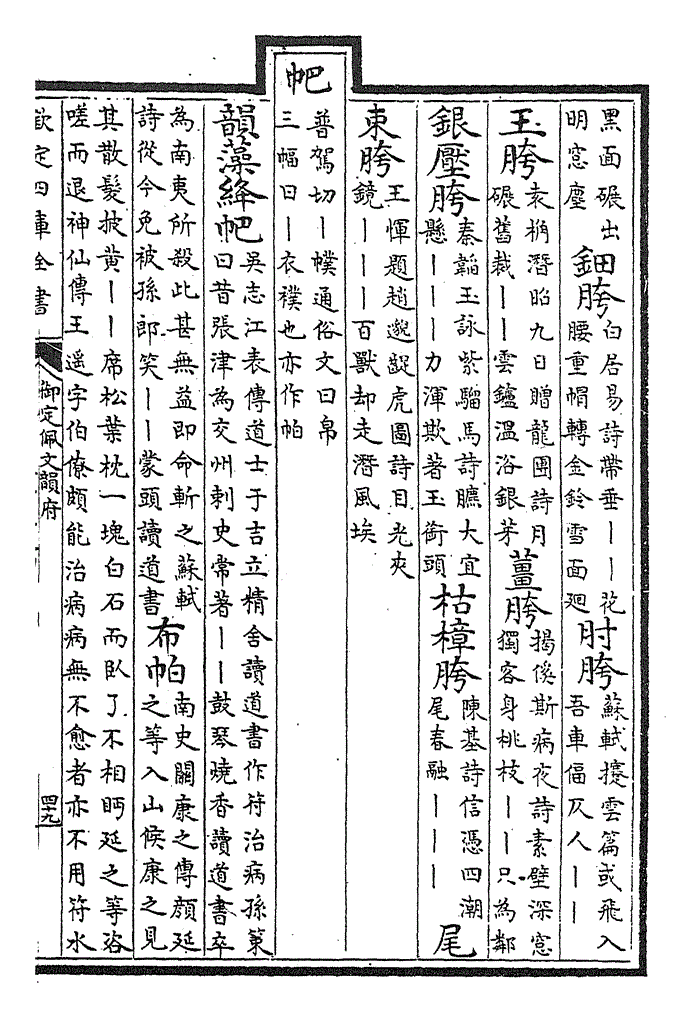 黑面碾出
明窓塵
鈿胯
白居易詩帶垂丨丨花
腰重帽轉金鈴雪面廻
肘胯
蘇軾攓雲篇或飛入
吾車偪仄人丨丨
玉胯
袁桷潛昭九日贈龍團詩月
碾舊裁丨丨雲鑪溫浴銀芽
薑胯
揭傒斯病夜詩素壁深窓
獨客身桃枝丨丨只為鄰
銀壓胯
秦韜玉詠紫騮馬詩臕大宜
懸丨丨丨力渾欺著玉銜頭
枯樟胯
陳基詩信憑四潮
尾春融丨丨丨
尾
束胯
王惲題趙邈齪虎圖詩目光夾
鏡丨丨丨百獸却走潛風埃
帊
普駕切丨幞通俗文曰帛
三幅曰丨衣襆也亦作帕
韻藻絳帊
吳志江表傳道士于吉立精舍讀道書作符治病孫策
曰昔張津為交州刺史常著丨丨鼓琴燒香讀道書卒
為南夷所殺此甚無益即命斬之蘇軾
詩從今免被孫郎笑丨丨蒙頭讀道書
布帕
南史關康之傳顔延
之等入山候康之見
其散髮披黄丨丨席松葉枕一塊白石而臥了不相眄延之等咨
嗟而退神仙傳王遥字伯僚頗能治病病無不愈者亦不用符水
欽定四庫全書
御定佩文韻府
四十九